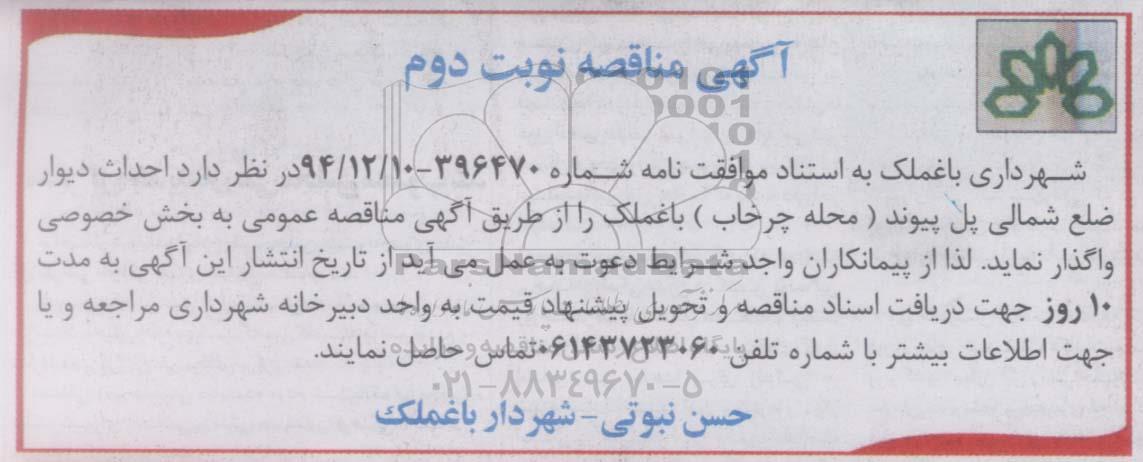 آگهی مناقصه نوبت دوم
شهرداری باغملک به استناد موافقت نامه شماره ۳۹۶۴۷۰-۹۴/۱۲/۱۰در نظر دارد احداث دیوار
ضلع شمالی پل پیوند ( محله چرخاب ) باغملک را از طریق آگهی مناقصه عمومی به بخش خصوصی
واگذار نماید. لذا از پیمانکاران واجد شرایط دعوت به عمل می آید از تاریخ انتشار این آگهی به مدت
۱۰ روز جهت دریافت اسناد مناقصه و تحویل پیشنهاد قیمت به واحد دبیرخانه شهرداری مراجعه و یا
جهت اطلاعات بیشتر با شماره تلفن ۰۶۱۴۳۷۲۳۰۶۰تماس حاصل نمایند.
حسن نبوتی - شهردار باغملک
ParsNamadData
۰۲۱-۸۸۳۴۹۶۷۰-۵